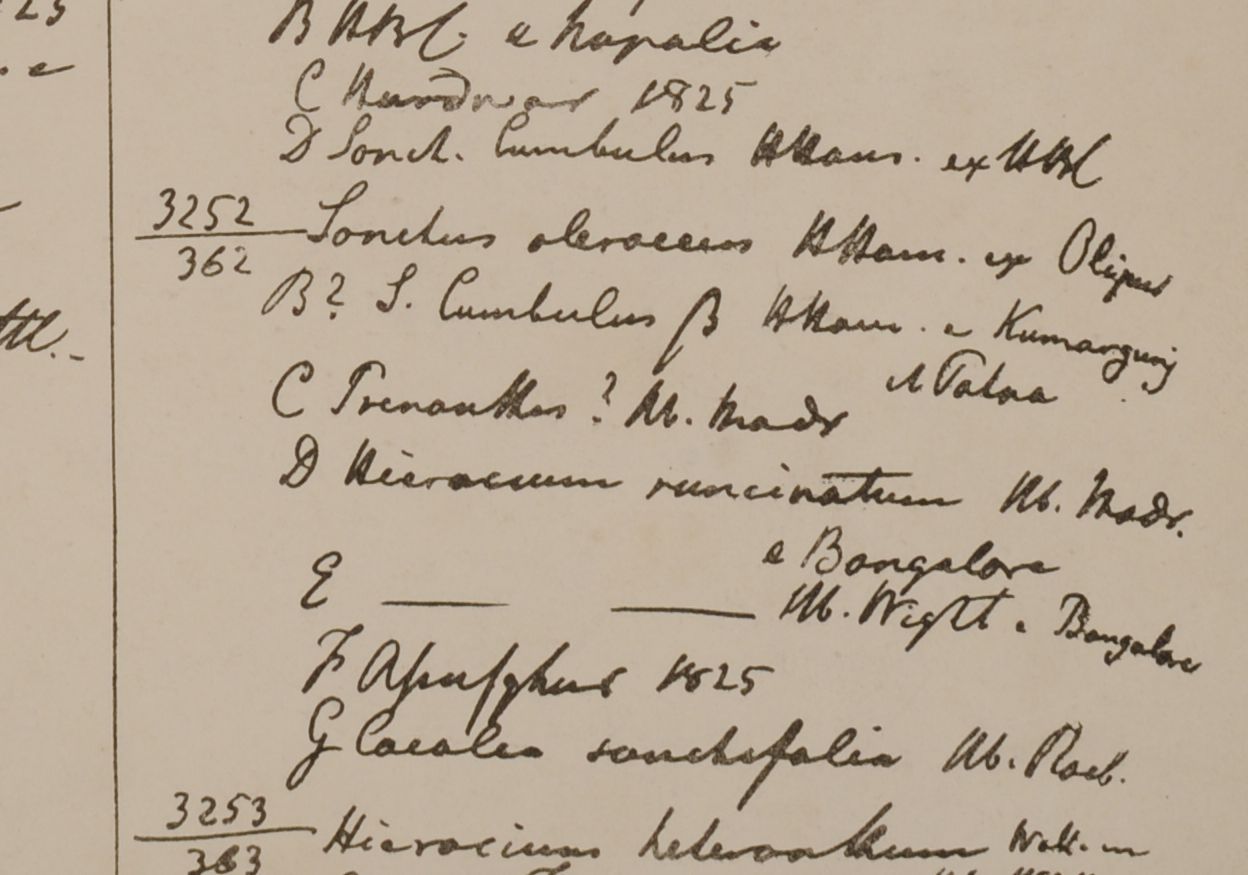 B HBC. e Napalia
C Hurdwar 1825
D Sonch. Cumbulus HHam. ex HBC
3252 Sonchus oleraceus HHam. ex Olipur
362
B? S. Cumbulus β HHam. e Kumargunj
et Patna
C Prenanthes? Hb. Madr
D Hieracium runcinatum Hb. Madr.
e Bangalore
E — — Hb. Wight e Bangalore
F 1825
G Cacalia sonchifolia Hb. Roxb.
3253 Hieracium heteranthum Wall. in
363